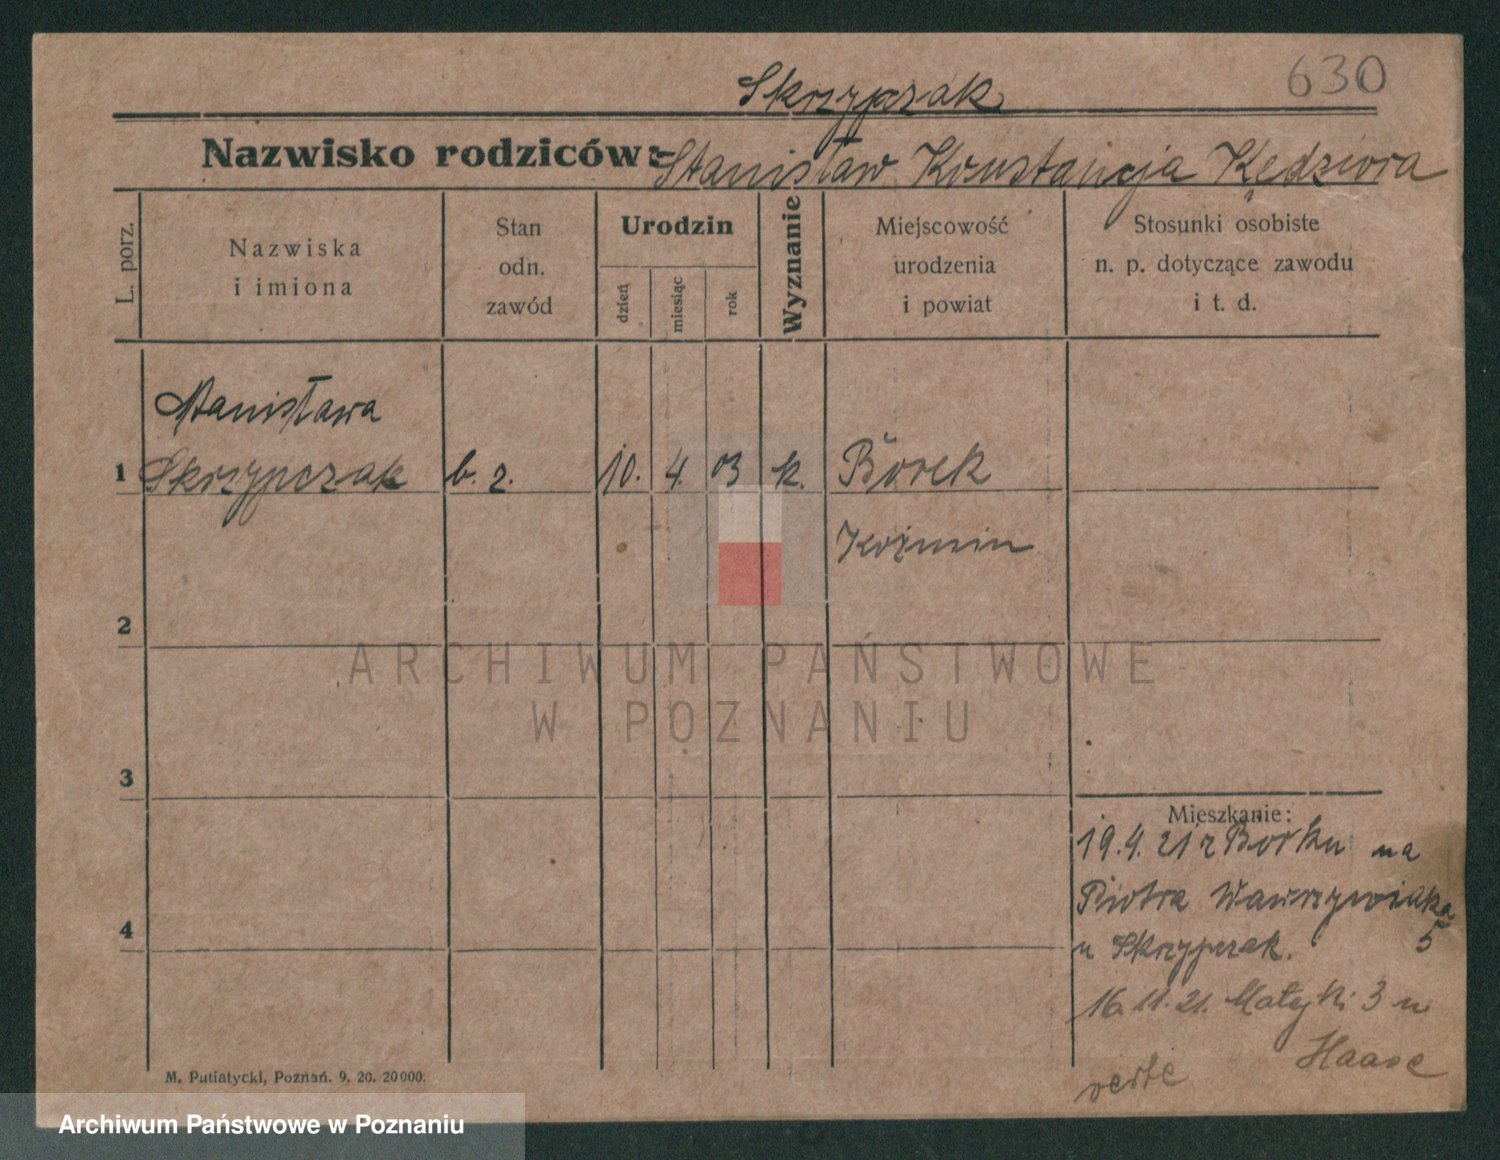 630
Skrzypczak
Nazwisko rodziców: Stanisław Konstancja Kędziora
L. porz.
Nazwiska
i imiona
Stan
odn.
zawód
Urodzin
dzień
miesiąc
rok
Wyznanie
Miejscowość
urodzenia
i powiat
Stosunki osobiste
n. p. dotyczące zawodu
i t. d.
Stanisława
1 Skrzypczak b. z. 10. 4. 03 k. Borek
Koźmin
2
ARCHIWUM PAŃSTWOWE
W POZNANIU
3
Mieszkanie:
19.4.21 z Borku na
Piotra Wawrzyniaka
5
u Skrzypczak.
4
16.11.21. Matejki 3 u
Haase
verte
M. Putiatycki, Poznań. 9. 20. 20000.
Archiwum Państwowe w Poznaniu